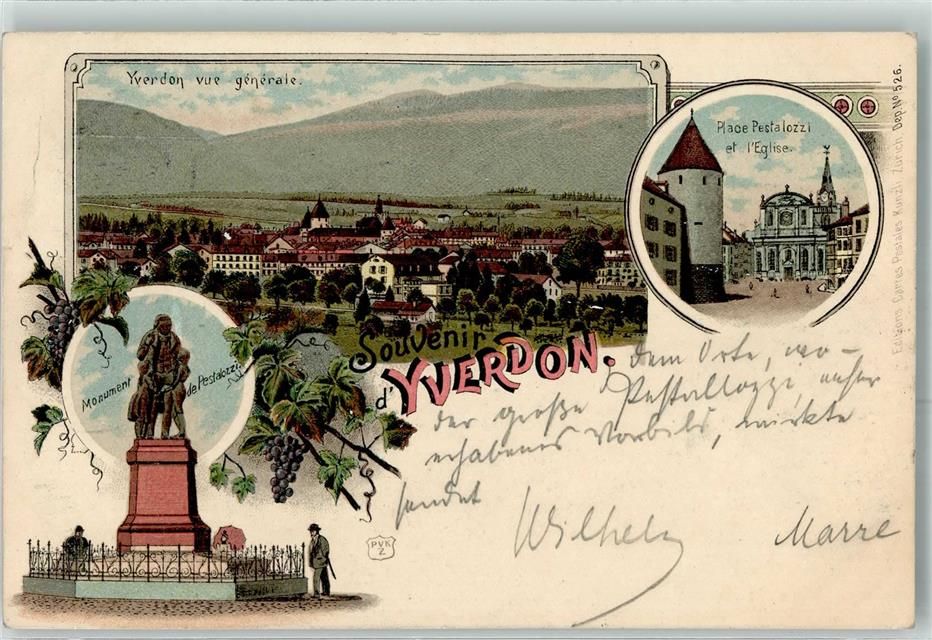 Yverdon vue générale.
Place Pestalozzi
et l'Eglise.
Editions Cartes Postales Künzli Zürich Dep. No 526.
Monument de Pestalozzi
Souvenir
d'YVERDON.
dem Orte, wo
der große Pestallozzi, unser
erhabenes Vorbild, wirkte
sendet
Wilhelm Marre
PVK
Z